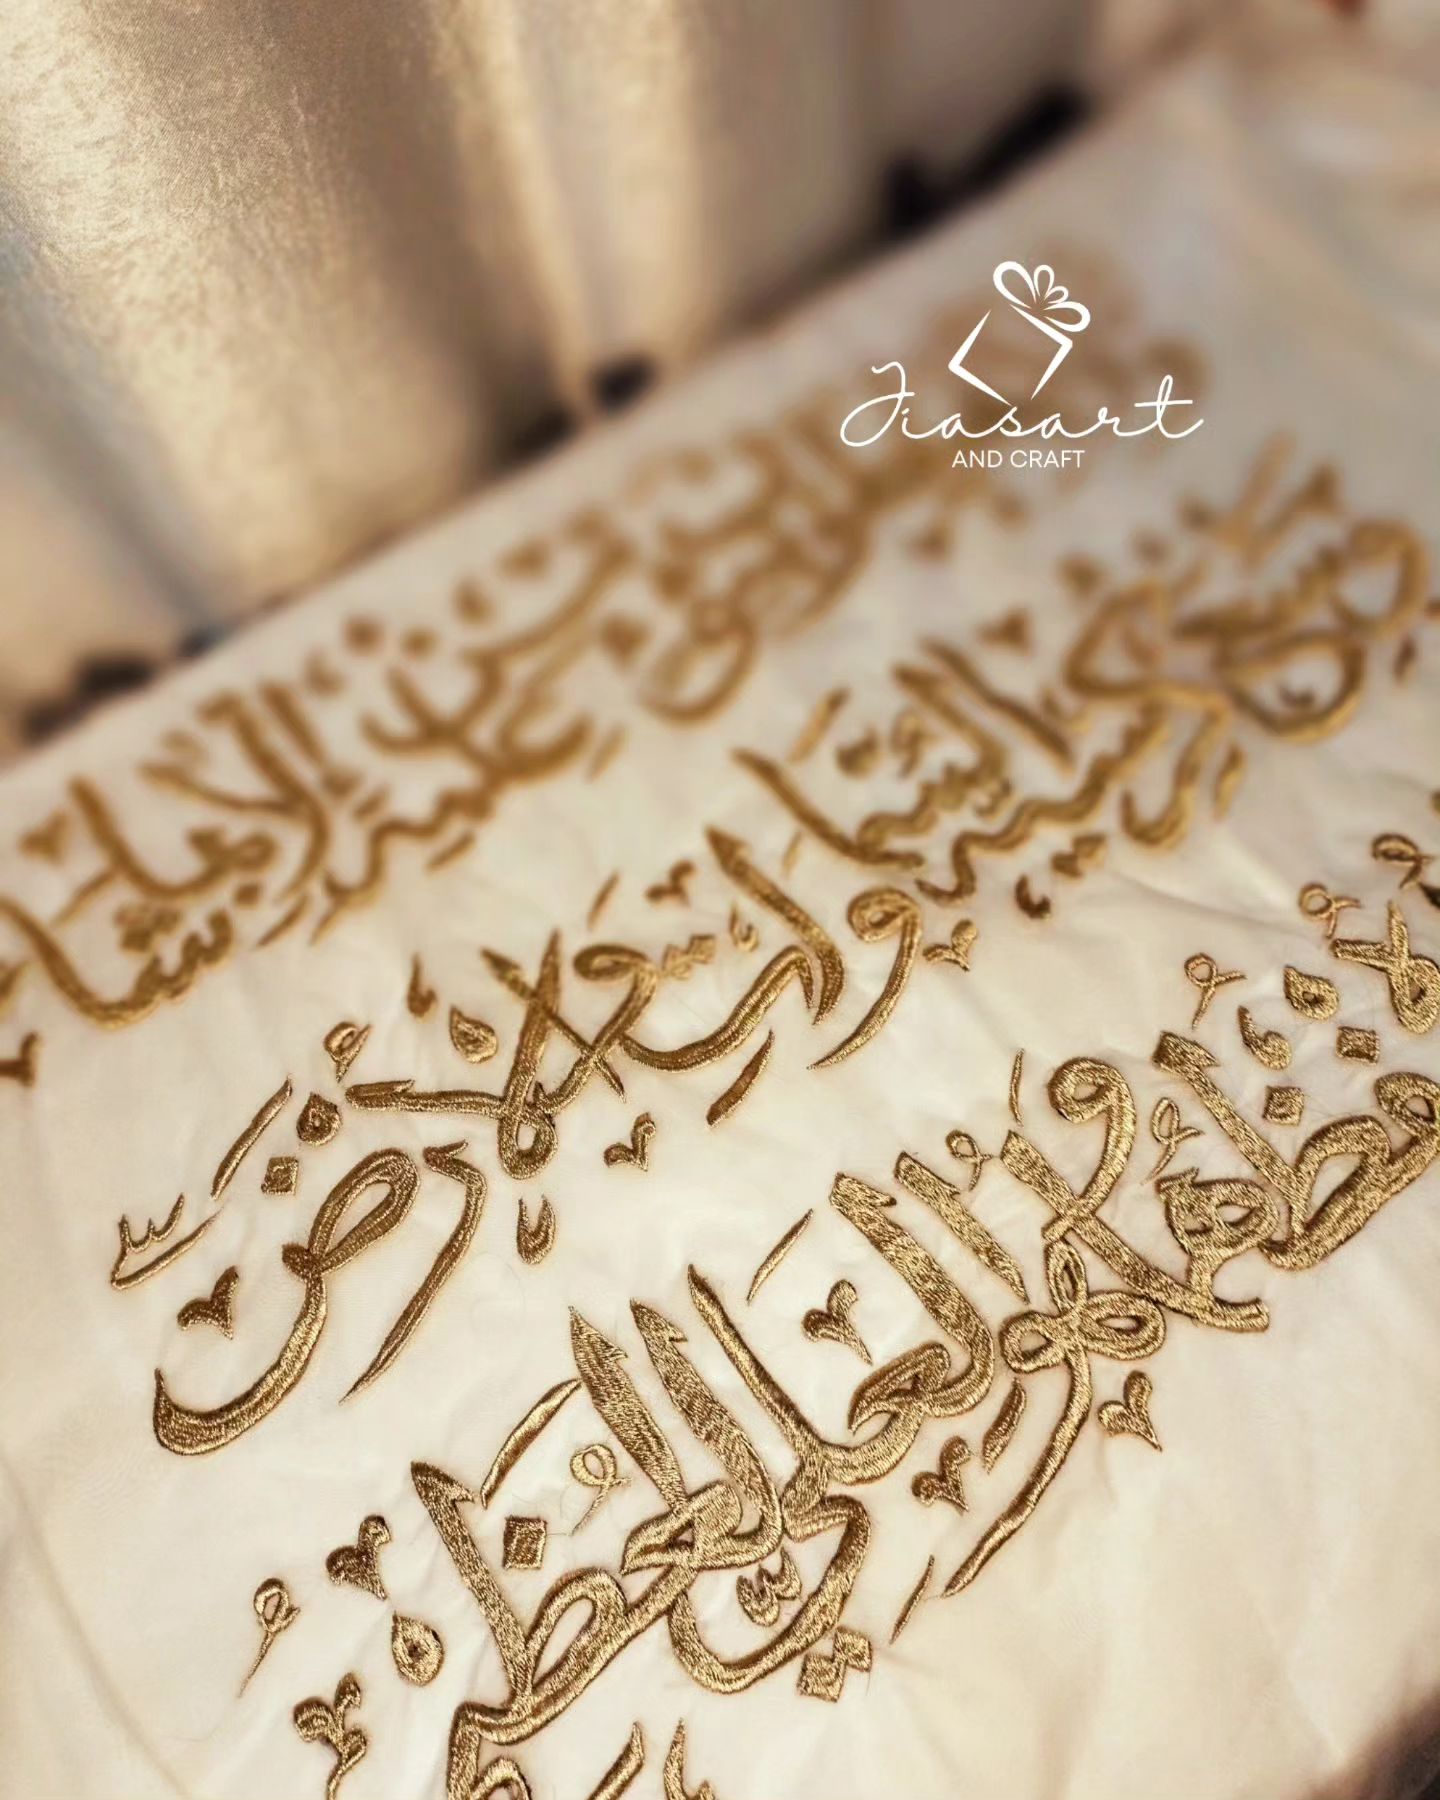 Jiasart
AND CRAFT
علمه إلا بما شاء
وسع كرسيه السماوات والأرض
حفظهما وهو العلي العظيم